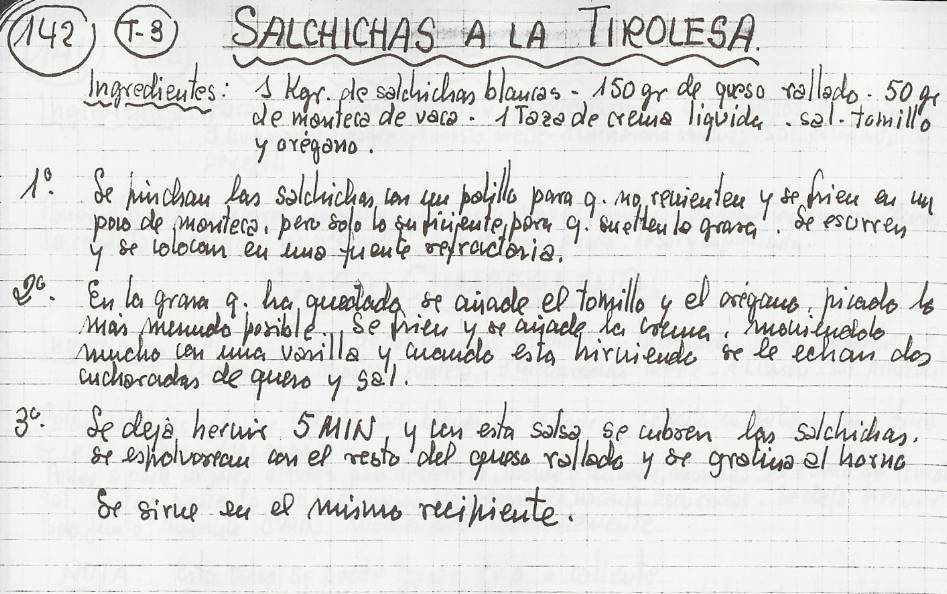 142 T-3 SALCHICHAS A LA TIROLESA.
Ingredientes: 1 Kgr. de salchichas blancas - 150 gr de queso rallado - 50 gr
de manteca de vaca - 1 Taza de crema liquida . sal - tomillo
y orégano .
1º. Se pinchan las salchichas, con un palillo para q. no revienten y se frien en un
poco de manteca, pero solo lo suficiente, para q. suelten la grasa . Se escurren
y se colocan en una fuente refractaria.
2º. En la grasa q. ha quedado se añade el tomillo y el orégano, picado lo
más menudo posible. Se frien y se añade la crema, moviendolo
mucho con una varilla y cuando esta hirviendo se le echan dos
cucharadas de queso y sal.
3º. Se deja hervir 5 MIN, y con esta salsa se cubren las salchichas.
se espolvorean con el resto del queso rallado y se gratina al horno
Se sirve en el mismo recipiente.